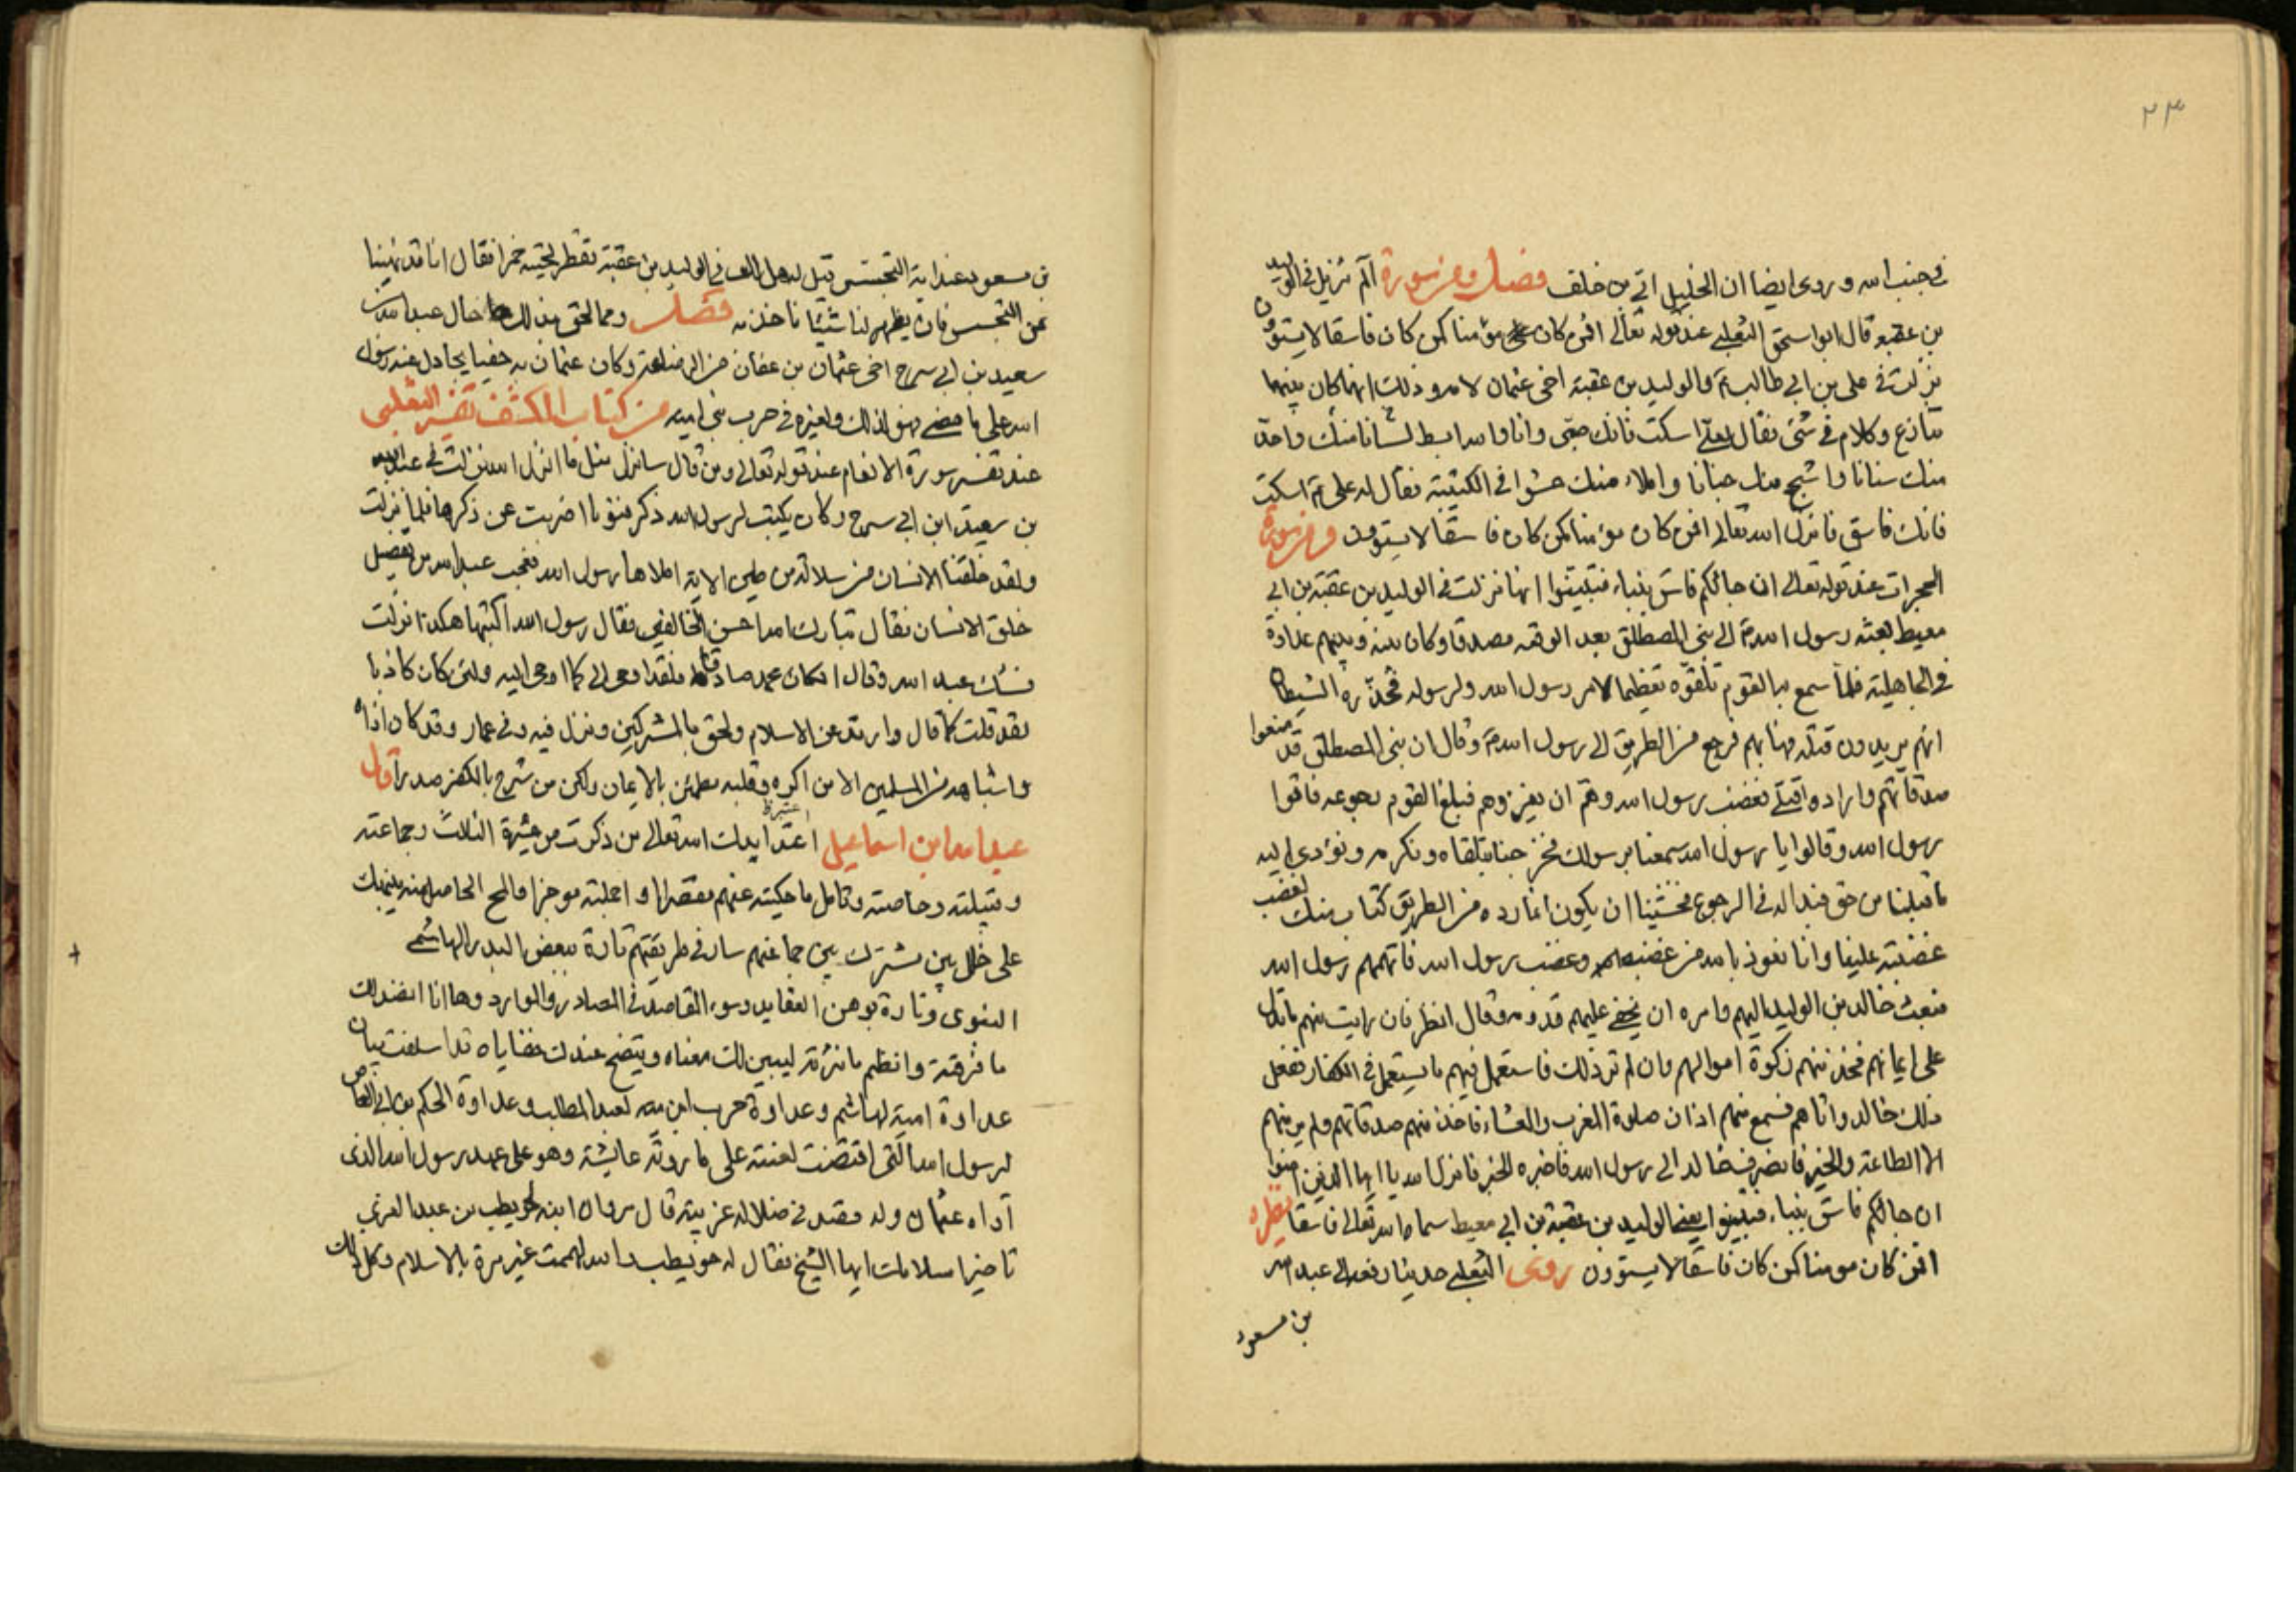 ٢٣
في جنب الله وروى ايضا ان الخليل ابي بن خلف فصل ومن سورة الم تنزيل في الوليد
بن عقبه قال ابو اسحق الثعلبي عند قوله تعالى افمن كان مؤمنا كمن كان فاسقا لا يستوون
نزلت في علي بن ابي طالب ع والوليد بن عقبة اخي عثمان لامه وذلك انه كان بينهما
تنازع وكلام في شئ فقال لعلي اسكت فانك صبي وانا والله ابسط لسانا منك واحد
منك سنانا واشجع منك جنانا واملاء منك حشوا في الكتيبة فقال له علي ع اسكت
فانك فاسق فانزل الله تعالى افمن كان مؤمنا كمن كان فاسقا لا يستوون ومن سورة
الحجرات عند قوله تعالى ان جائكم فاسق بنباء فتبينوا انها نزلت في الوليد بن عقبة بن ابي
معيط بعثه رسول الله ص الى بني المصطلق بعد الوقعه مصدقا وكان بينه وبينهم عداوة
في الجاهلية فلما سمع به القوم تلقوه تعظيما لامر رسول الله ولرسوله فحذره الشيطان
انهم يريدون قتله فهابهم فرجع من الطريق الى رسول الله ص وقال ان بني المصطلق قد منعوا
صدقاتهم وارادوا قتلي فغضب رسول الله وهم ان يغزوهم فبلغ القوم رجوعه فاتوا
رسول الله وقالوا يا رسول الله سمعنا برسولك فخرجنا نتلقاه ونكرمه ونؤدي اليه
ما قبلنا من حق فبدا له في الرجوع فخشينا ان يكون انما رده من الطريق كتاب منك لغضب
غضبته علينا وانا نعوذ بالله من غضبه وغضب رسول الله فاتهمهم رسول الله
فبعث خالد بن الوليد اليهم وامره ان يخفي عليهم قدومه وقال انظر فان رايت منهم ما يدل
على ايمانهم فخذ منهم زكوة اموالهم وان لم تر ذلك فاستعمل فيهم ما يستعمل في الكفار ففعل
ذلك خالد واتاهم فسمع منهم اذان صلوة المغرب والعشاء فاخذ منهم صدقاتهم ولم ير منهم
الا الطاعة والخير فانصرف خالد الى رسول الله فاخبره الخبر فانزل الله يا ايها الذين امنوا
ان جائكم فاسق بنباء فتبينوا يعني الوليد بن عقبة بن ابي معيط سماه الله تعالى فاسقا نظيره
افمن كان مومنا كمن كان فاسقا لا يستوون روى الثعلبي حديثا رفعه الى عبد الله
بن مسعود
بن مسعود عند اية التجسس قيل له هل لك في الوليد بن عقبة تقطر لحيته خمرا فقال انا قد نهينا
عن التجسس فان يظهر لنا شيئا ناخذ به فصل ومما لحق بذلك حال عبد الله بن
سعيد بن ابي سرح اخي عثمان بن عفان من الرضاعة وكان عثمان به حفيا يجادل عند رسول
الله على ما مضى فهو لذلك ولغيره في حرب بني اميه من كتاب الكشف تفسير الثعلبي
عند تفسير سورة الانعام عند قوله تعالى ومن قال سانزل مثل ما انزل الله نزلت في عبد الله
بن سعيد ابن ابي سرح وكان يكتب لرسول الله ذكر فنونا اضربت عن ذكرها فلما نزلت
ولقد خلقنا الانسان من سلالة من طين الاية املاها رسول الله فعجب عبد الله من تفصيل
خلق الانسان فقال تبارك الله احسن الخالقين فقال رسول الله اكتبها هكذا نزلت
فشك عبد الله وقال ان كان محمد صادقا فلقد اوحى الي كما اوحى اليه ولئن كان كاذبا
لقد قلت كما قال وارتد عن الاسلام ولحق بالمشركين ونزل فيه وفي عمار وقد كان اذاه
واشباهه من المسلمين الا من اكره وقلبه مطمئن بالايمان ولكن من شرح بالكفر صدرا قال
عبد الله بن اسماعيل اعتد ايدك الله تعالى من ذكرت من عشيرة الثالث وجماعته
وقبيلته وخاصته وتامل ما حكيته عنهم مفصلا واجلته موجزا والمح الحاصل منه ينبئك
على خلل بين مشترك بين جماعتهم سار في طريقتهم تارة ببغض البدر الهاشمي
النبوي وتارة بوهن العقايد وسوء المقاصد في المصادر والموارد وها انا انضد لك
ما فرقته وانظم ما نثرته ليبين لك معناه ويتضح عندك قضاياه قد اسلفت بيان
عداوة امية لهاشم وعداوة حرب ابن اميه لعبد المطلب وعداوة الحكم بن ابي العاص
لرسول الله التي اقتضت لعنته على ما روته عايشة وهو على عهد رسول الله الذي
آواه عثمان وله مقصد في ضلاله غريبة قال مروان ابنه لحويطب بن عبد العزى
تاخر اسلامك ايها الشيخ فقال له حويطب والله لهممت غير مرة بالاسلام وكل ذلك